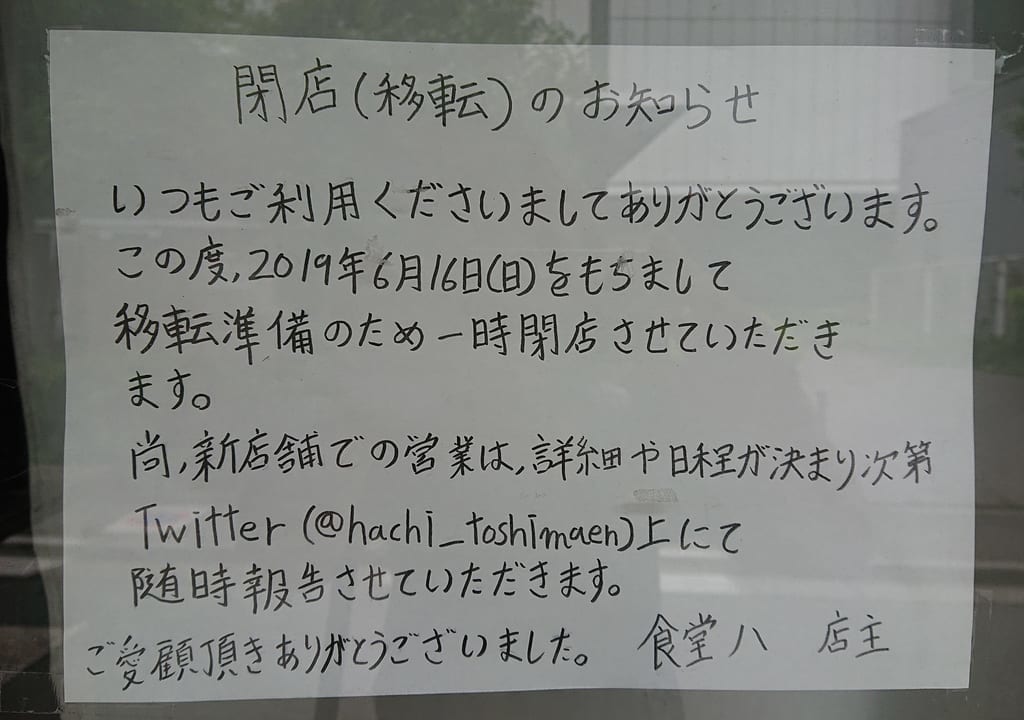 閉店(移転)のお知らせ
いつもご利用くださいましてありがとうございます。
この度,2019年6月16日(日)をもちまして
移転準備のため一時閉店させていただき
ます。
尚,新店舗での営業は,詳細や日程が決まり次第
Twitter(@hachi_toshimaen)上にて
随時報告させていただきます。
ご愛顧頂きありがとうございました。 食堂八 店主